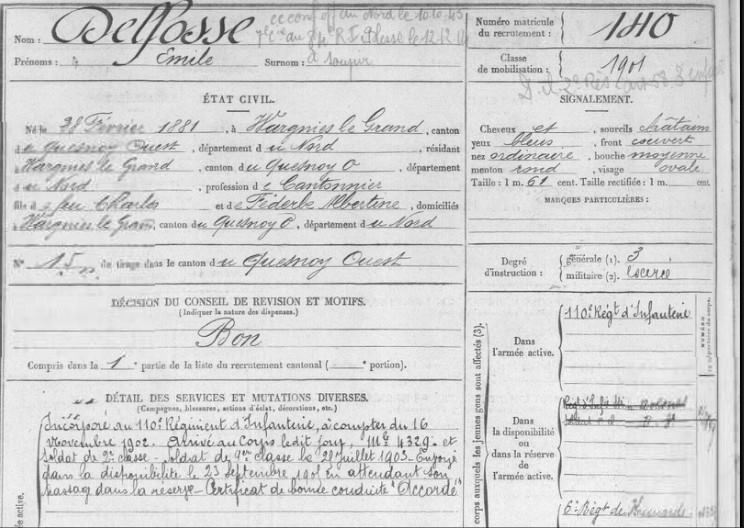 Nom : Delfosse
Prénoms : Emile Surnom :
ÉTAT CIVIL.
Né le 28 Février 1881, à Wargnies le Grand, canton
du Quesnoy Ouest, département du Nord, résidant
Wargnies le Grand canton du Quesnoy O, département
du Nord, profession de Cantonnier
fils de feu Charles et de Féderbe Albertine, domiciliés
Wargnies le Grand, canton du Quesnoy O, département du Nord
N° 15 de tirage dans le canton du Quesnoy Ouest
DÉCISION DU CONSEIL DE REVISION ET MOTIFS.
(Indiquer la nature des dispenses.)
Bon
Compris dans la 1e partie de la liste du recrutement cantonal ( e portion).
DÉTAIL DES SERVICES ET MUTATIONS DIVERSES.
(Campagnes, blessures, actions d'éclat, décorations, etc.)
Incorporé au 110e Régiment d'Infanterie, à compter du 16
Novembre 1902. Arrivé au Corps le dit jour, Mle 4329 et
Soldat de 2e classe. Soldat de 1re classe le 21 Juillet 1903. Envoyé
dans la disponibilité le 23 Septembre 1905 en attendant son
passage dans la réserve. Certificat de bonne conduite "Accordé"
Numéro matricule
du recrutement : 1140
Classe
de mobilisation : 1901
SIGNALEMENT.
Cheveux et sourcils châtain
yeux bleus, front couvert
nez ordinaire, bouche moyenne
menton rond, visage ovale
Taille : 1 m. 61 cent. Taille rectifiée : 1 m. cent.
MARQUES PARTICULIÈRES :
Degré
d'instruction :
générale (1). 3
militaire (2). exercé
corps auxquels les jeunes gens sont affectés (3).
Dans
l'armée active.
110e Régt d'Infanterie
Dans
la disponibilité
ou dans la réserve
de l'armée active.
6e Régt de